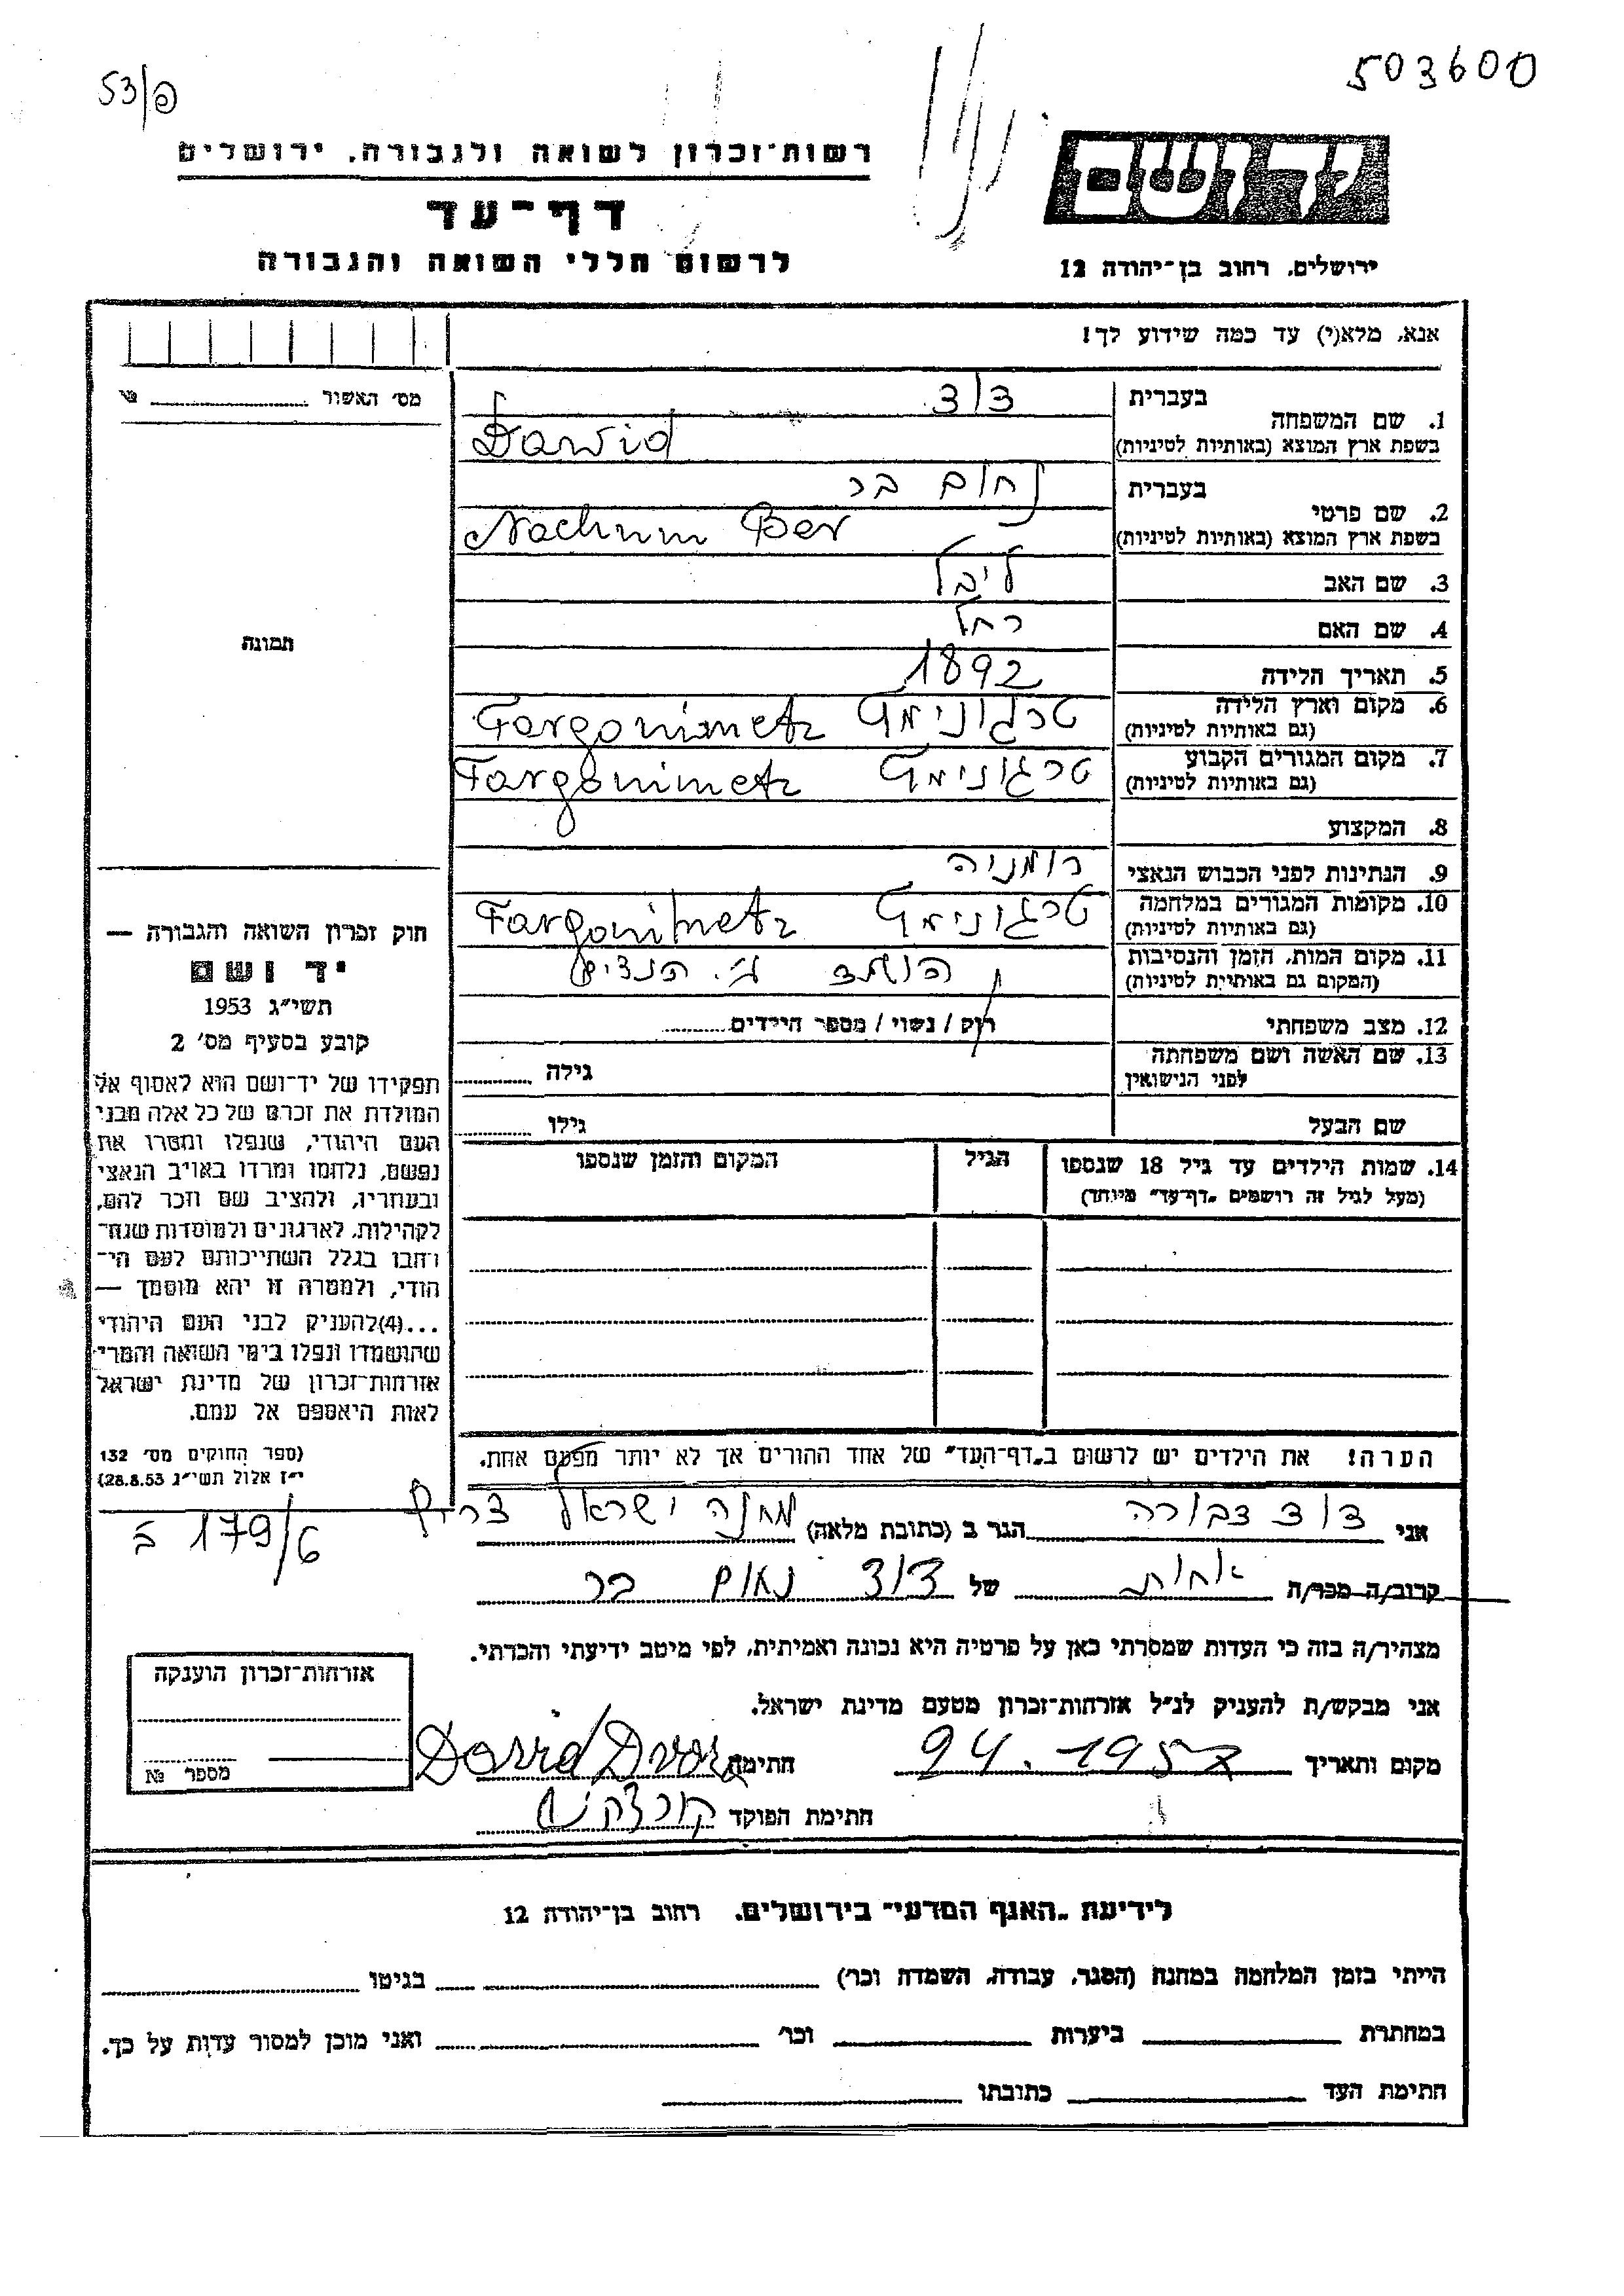 503600
53/פ
יד ושם
רשות־זכרון לשואה ולגבורה, ירושלים
דף־עד
לרשום חללי השואה והגבורה
ירושלים, רחוב בן־יהודה 12
אנא, מלא(י) עד כמה שידוע לך!
מס׳ האשור
1. שם המשפחה
בעברית
דוד
בשפת ארץ המוצא (באותיות לטיניות)
Dawid
2. שם פרטי
בעברית
נחום בר
בשפת ארץ המוצא (באותיות לטיניות)
Nachum Ber
3. שם האב
ליבל
4. שם האם
רחל
5. תאריך הלידה
1892
6. מקום וארץ הלידה
(גם באותיות לטיניות)
טרגונימץ Targonimetz
7. מקום המגורים הקבוע
(גם באותיות לטיניות)
טרגונימץ Targonimetz
8. המקצוע
9. הנתינות לפני הכבוש הנאצי
רומניה
10. מקומות המגורים במלחמה
(גם באותיות לטיניות)
טרגונימץ Targonimetz
11. מקום המות, הזמן והנסיבות
(המקום גם באותיית לטיניות)
12. מצב משפחתי
רוק / נשוי / מספר הילדים
13. שם האשה ושם משפחתה
לפני הנישואין
גילה
שם הבעל
גילו
14. שמות הילדים עד גיל 18 שנספו
(מעל לגיל זה רושמים „דף־עד" מיוחד)
הגיל
המקום והזמן שנספו
הערה! את הילדים יש לרשום ב„דף־העד" של אחד ההורים אך לא יותר מפעם אחת.
תמונה
חוק זכרון השואה והגבורה —
יד ושם
תשי״ג 1953
קובע בסעיף מס׳ 2
תפקידו של יד־ושם הוא לאסוף אל
המולדת את זכרם של כל אלה מבני
העם היהודי, שנפלו ומסרו את
נפשם, נלחמו ומרדו באויב הנאצי
ובעוזריו, ולהציב שם וזכר להם,
לקהילות, לארגונים ולמוסדות שנח־
רבו בגלל השתייכותם לעם הי־
הודי, ולמטרה זו יהא מוסמך —
...(4)להעניק לבני העם היהודי
שהושמדו ונפלו בימי השואה והמרי־
אזרחות־זכרון של מדינת ישראל
לאות היאספם אל עמם.
(ספר החוקים מס׳ 132
י״ז אלול תשי״ג 28.8.53)
179/6
אני דוד דבורה הגר ב (כתובת מלאה) מחנה ישראל
קרוב/ה מכר/ה אחות של דוד נאום בר
מצהיר/ה בזה כי העדות שמסרתי כאן על פרטיה היא נכונה ואמיתית, לפי מיטב ידיעתי והכרתי.
אני מבקש/ת להעניק לנ״ל אזרחות־זכרון מטעם מדינת ישראל.
מקום ותאריך 94.1957 חתימה David
חתימת הפוקד
אזרחות־זכרון הוענקה
מספר №
לידיעת „האגף המדעי" בירושלים, רחוב בן־יהודה 12
הייתי בזמן המלחמה במחנה (הסגר, עבודה, השמדה וכר׳) בגיטו
במחתרת ביערות וכר׳ ואני מוכן למסור עדות על כך.
חתימת העד כתובתו